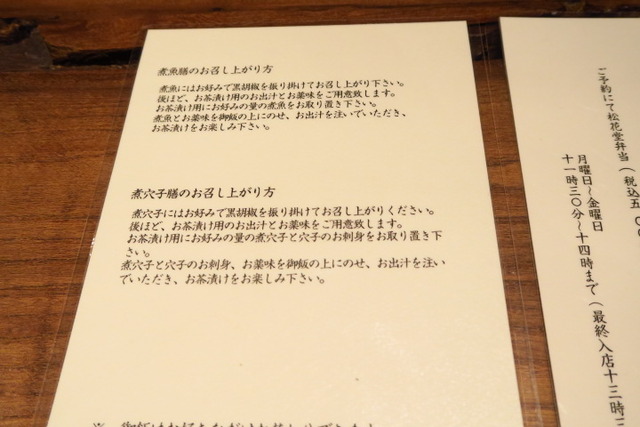 煮魚膳のお召し上がり方
煮魚にはお好みで黒胡椒を振り掛けてお召し上がり下さい。
後ほど、お茶漬け用のお出汁とお薬味をご用意致します。
お茶漬け用にお好みの量の煮魚をお取り置き下さい。
煮魚とお薬味を御飯の上にのせ、お出汁を注いでいただき、
お茶漬けをお楽しみ下さい。
煮穴子膳のお召し上がり方
煮穴子にはお好みで黒胡椒を振り掛けてお召し上がりください。
後ほど、お茶漬け用のお出汁とお薬味をご用意致します。
お茶漬け用にお好みの量の煮穴子と穴子のお刺身をお取り置き下
さい。
煮穴子と穴子のお刺身、お薬味を御飯の上にのせ、お出汁を注い
でいただき、お茶漬けをお楽しみ下さい。
ご予約にて松花堂弁当（税込五
月曜日～金曜日
十一時三〇分～十四時まで（最終入店十三時三